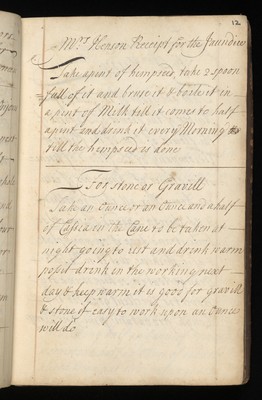 12
Mrs Henson Receipt for the Jaundies
Take a pint of hempseed, take 2 spoon
full of it and bruse it & boole it in
a pint of Milk till it comes to half
a pint and drink it every Morning
till the hempseed is done
For stone or Gravill
Take an Ounce or an Ounce and a half
of Casia in the Cane to be taken at
night going to rest and drink warm
posset drink in the working next
day & keep warm it is good for gravill
& stone if easy to work upon an Ounce
will do